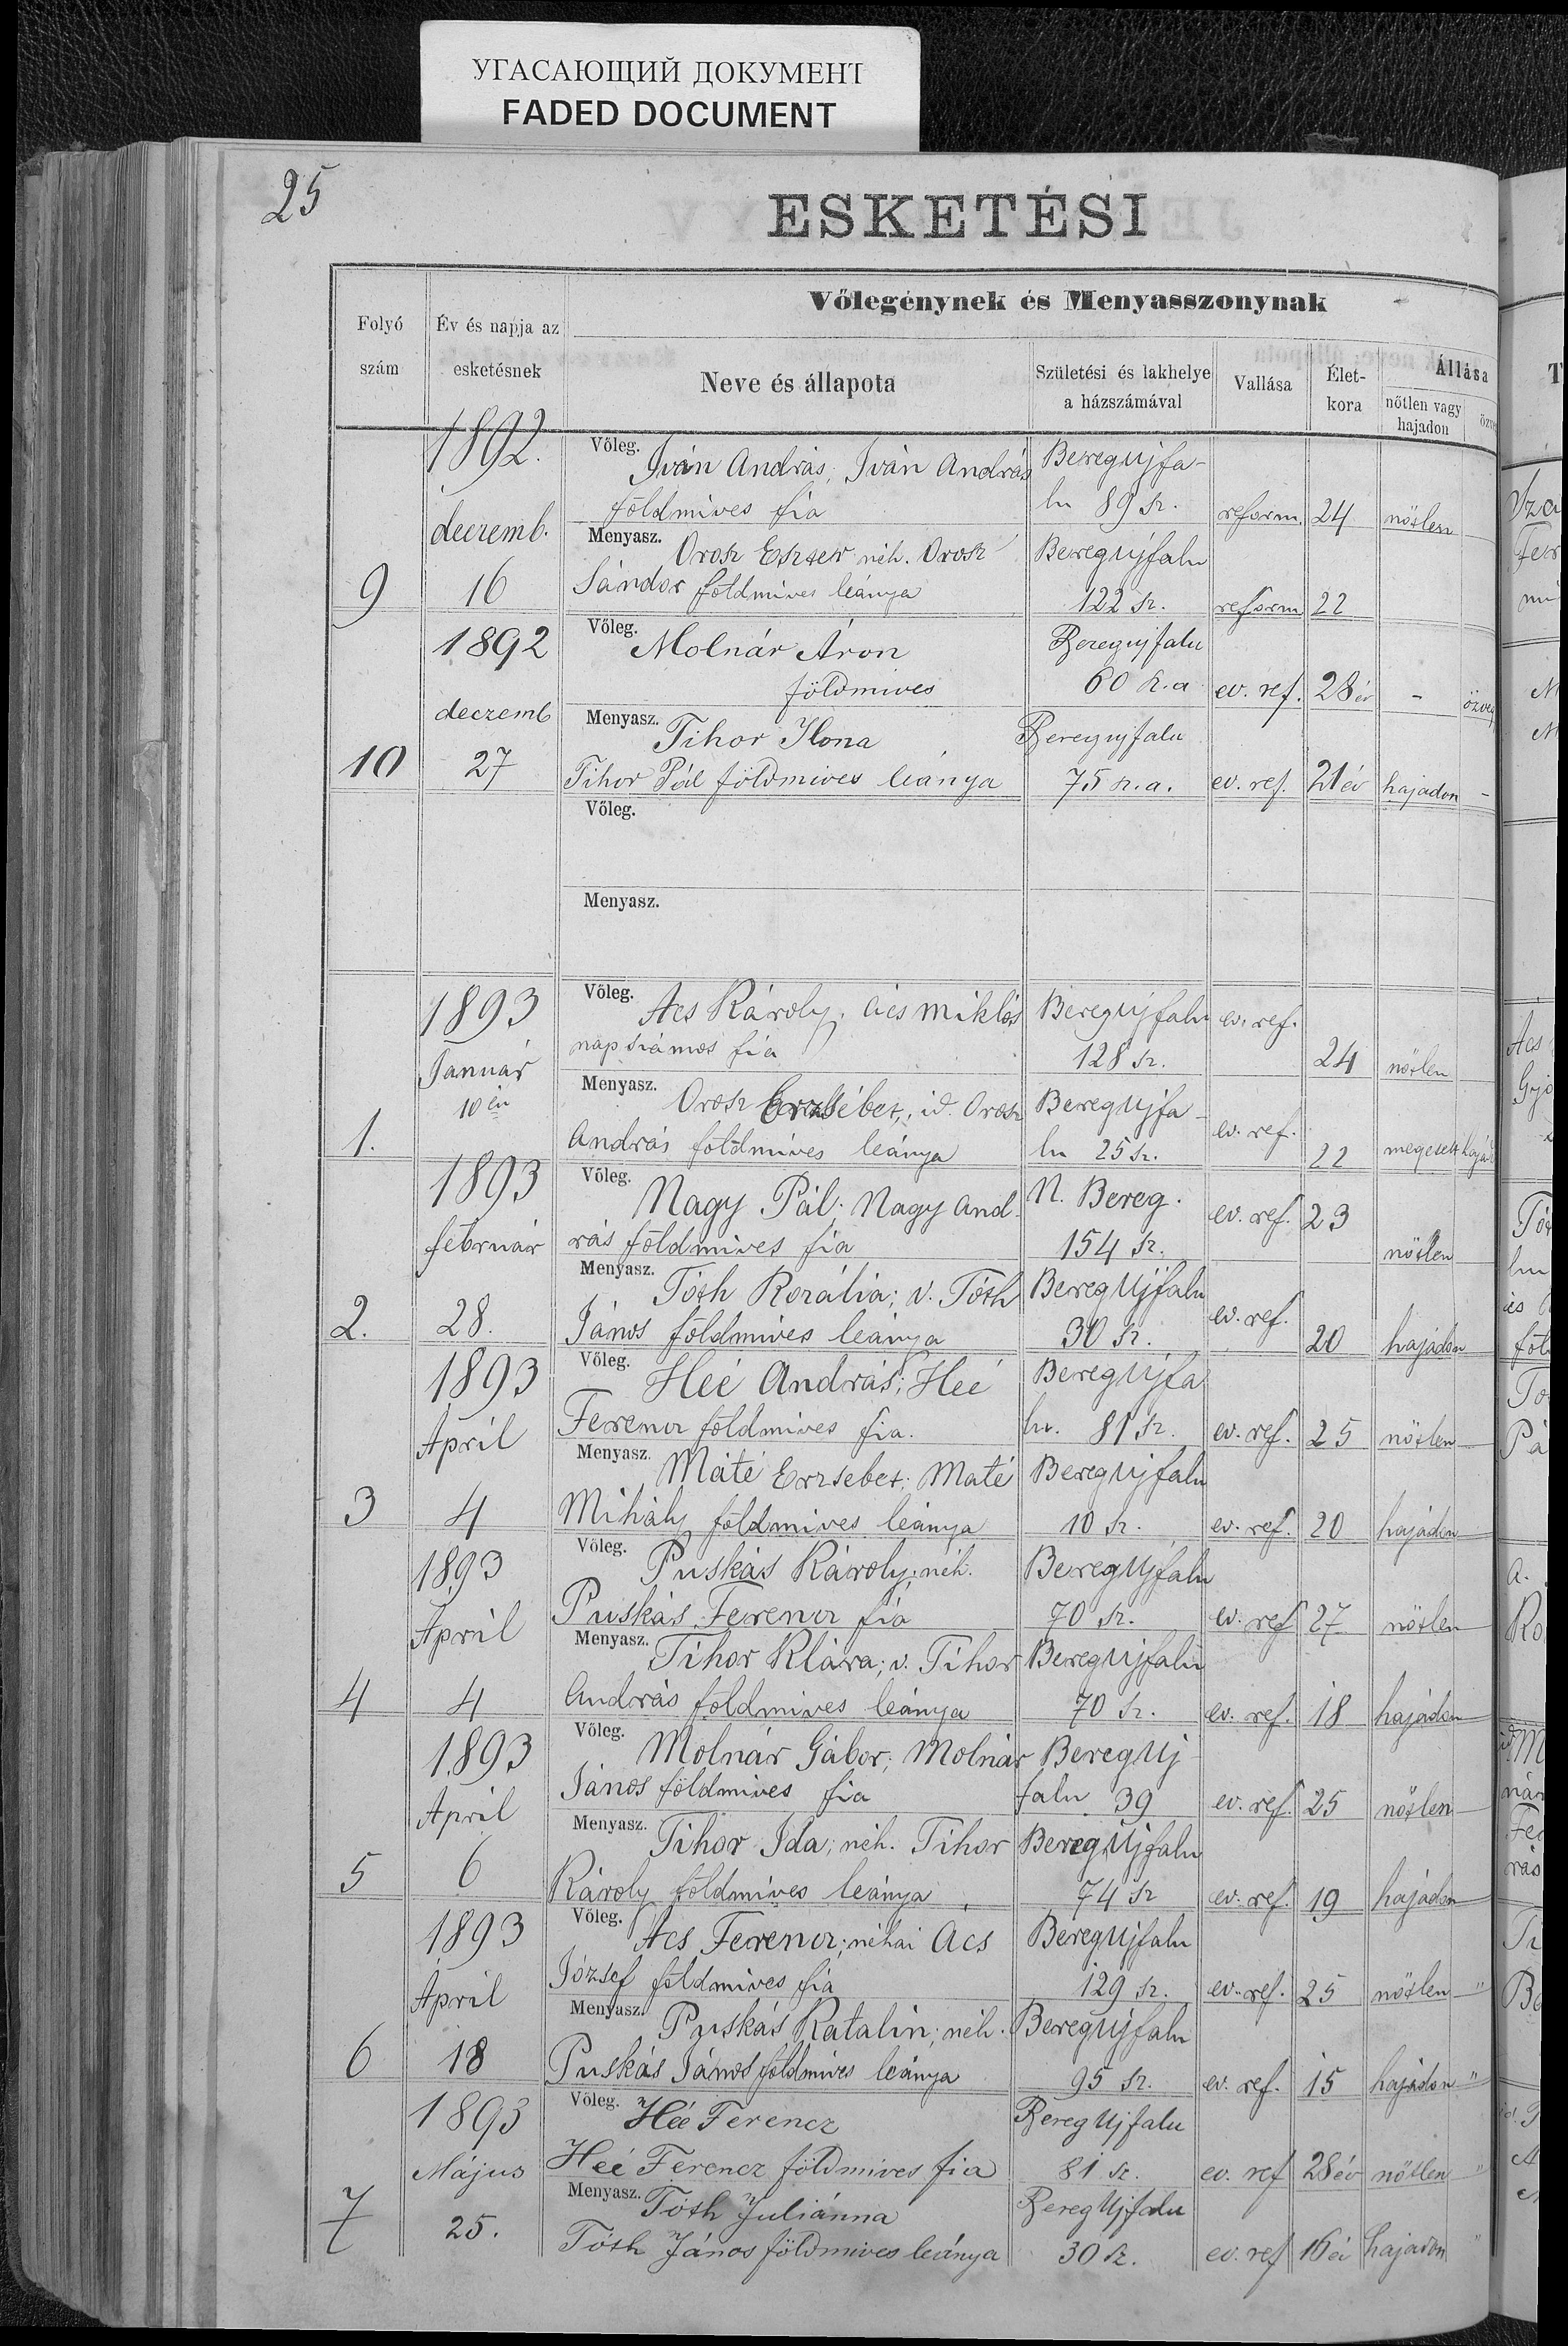 УГАСАЮЩИЙ ДОКУМЕНТ
FADED DOCUMENT
25
ESKETÉSI
Vőlegénynek és Menyasszonynak
Folyó szám
Év és napja az esketésnek
Neve és állapota
Születési és lakhelye a házszámával
Vallása
Élet-kora
Állása
nőtlen vagy hajadon
1892.
Vőleg. Iván András; Iván András Beregujfa-
földmives fia lu 89 sz. reform. 24 nőtlen
deczemb.
Menyasz. Orosz Eszter néh. Orosz Beregujfalu
9 16 Sándor földmives leánya 122 sz. reform 22
1892 Vőleg. Molnár Áron Beregujfalu
földmives 60 h.a ev. ref. 28 év - özveg
deczemb Menyasz. Tihor Ilona Beregujfalu
10 27 Tihor Pál földmives leánya 75 h.a. ev. ref. 21 év hajadon -
Vőleg.
Menyasz.
1893 Vőleg. Acs Károly; Ács Miklós Beregujfalu ev. ref.
Január napszámos fia 128 sz. 24 nőtlen
10én Menyasz. Orosz Erzsébet, id. Orosz Beregujfa-
1. András földmives leánya lu 25 sz. ev. ref. 22 megesett
1893 Vőleg. Nagy Pál; Nagy And- N. Bereg.
február rás földmives fia 154 sz. ev. ref. 23 nőtlen
Menyasz. Tóth Rozália; v. Tóth Beregujfalu
2. 28. János földmives leánya 30 sz. ev. ref. 20 hajadon
1893 Vőleg. Heé András; Heé Beregujfa
April Ferencz földmives fia. lu. 81 sz. ev. ref. 25 nőtlen
Menyasz. Máté Erzsebet; Maté Beregujfalu
3 4 Mihály földmives leánya 10 sz. ev. ref. 20 hajadon
1893 Vőleg. Puskás Károly; néh. Beregujfalu
April Puskás Ferencz fia 70 sz. ev. ref 27 nőtlen
Menyasz. Tihor Klára; v. Tihor Beregujfalu
4 4 András földmives leánya 70 sz. ev. ref. 18 hajadon
1893 Vőleg. Molnár Gábor; Molnár Bereguj-
April János földmives fia falu 39 ev. ref. 25 nőtlen
Menyasz. Tihor Ida; néh. Tihor Beregujfalu
5 6 Károly földmives leánya 74 sz ev. ref. 19 hajadon
1893 Vőleg. Acs Ferencz; néhai Ács Beregujfalu
April József földmives fia 129 sz. ev. ref. 25 nőtlen "
Menyasz. Puskás Katalin; néh. Beregujfalu
6 18 Puskás János földmives leánya 95 sz. ev. ref. 15 hajadon "
1893 Vőleg. Heé Ferencz Bereg Ujfalu
Május Heé Ferencz földmives fia 81 sz. ev. ref 28 év nőtlen "
Menyasz. Tóth Juliánna Bereg Ujfalu
7 25. Tóth János földmives leánya 30 sz. ev. ref 16 év hajadon "